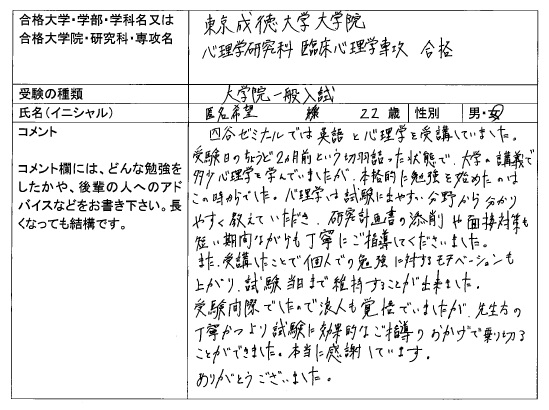 合格大学・学部・学科名又は
合格大学院・研究科・専攻名
東京成徳大学大学院
心理学研究科 臨床心理学専攻 合格
受験の種類
大学院一般入試
氏名(イニシャル)
匿名希望 様 22 歳 性別 男・女
コメント
コメント欄には、どんな勉強を
したかや、後輩の人へのアド
バイスなどをお書き下さい。長
くなっても結構です。
四谷ゼミナルでは英語と心理学を受講していました。
受験日のちょうど2カ月前という切羽詰った状態で、大学の講義で
多少心理学を学んでいましたが、本格的に勉強を始めたのは
この時からでした。心理学は試験に出やすい分野から分かり
やすく教えていただき、研究計画書の添削や面接対策も
短い期間ながらも丁寧にご指導してくださいました。
また、受講したことで個人での勉強に対するモチベーションも
上がり、試験当日まで維持することが出来ました。
受験間際でしたので浪人も覚悟でいましたが、先生方の
丁寧かつより試験に効果的なご指導のおかげで乗り切る
ことができました。本当に感謝しています。
ありがとうございました。